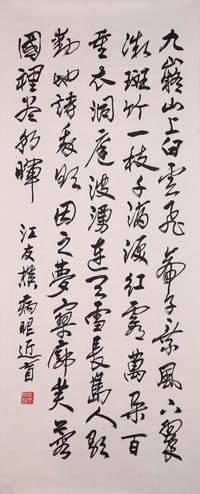 九嶷山上白雲飛帝子乘風下翠
微斑竹一枝千滴淚紅霞萬朵百
重衣洞庭波湧連天雪長島人歌
動地詩我欲因之夢寥廓芙蓉
國裡盡朝暉
江友樵病眼近盲